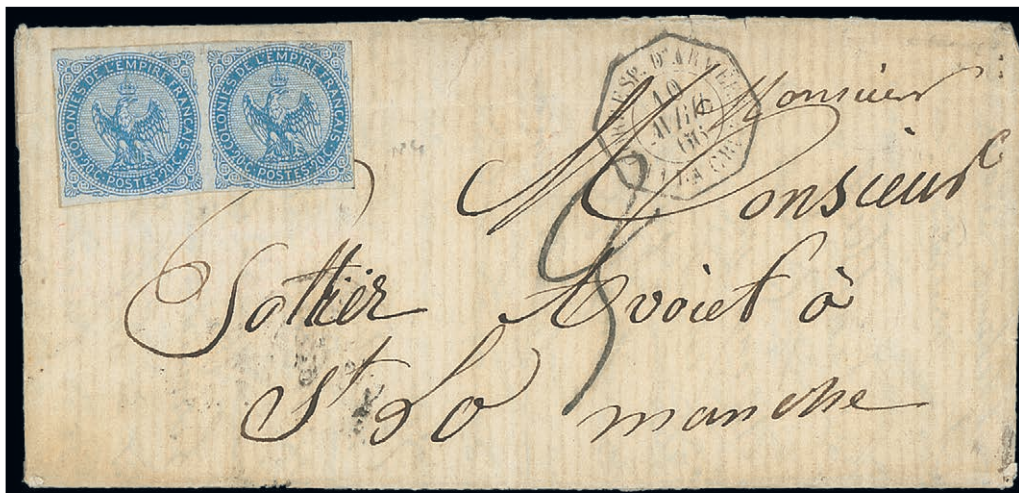 COLONIES DE L'EMPIRE FRANÇAIS
20C. POSTES 20C.
COLONIES DE L'EMPIRE FRANÇAIS
20C. POSTES 20C.
ESP. D'ARMÉE
10
AVRIL
66
Monsieur
Monsieur
Avoiet à
St Lo manche